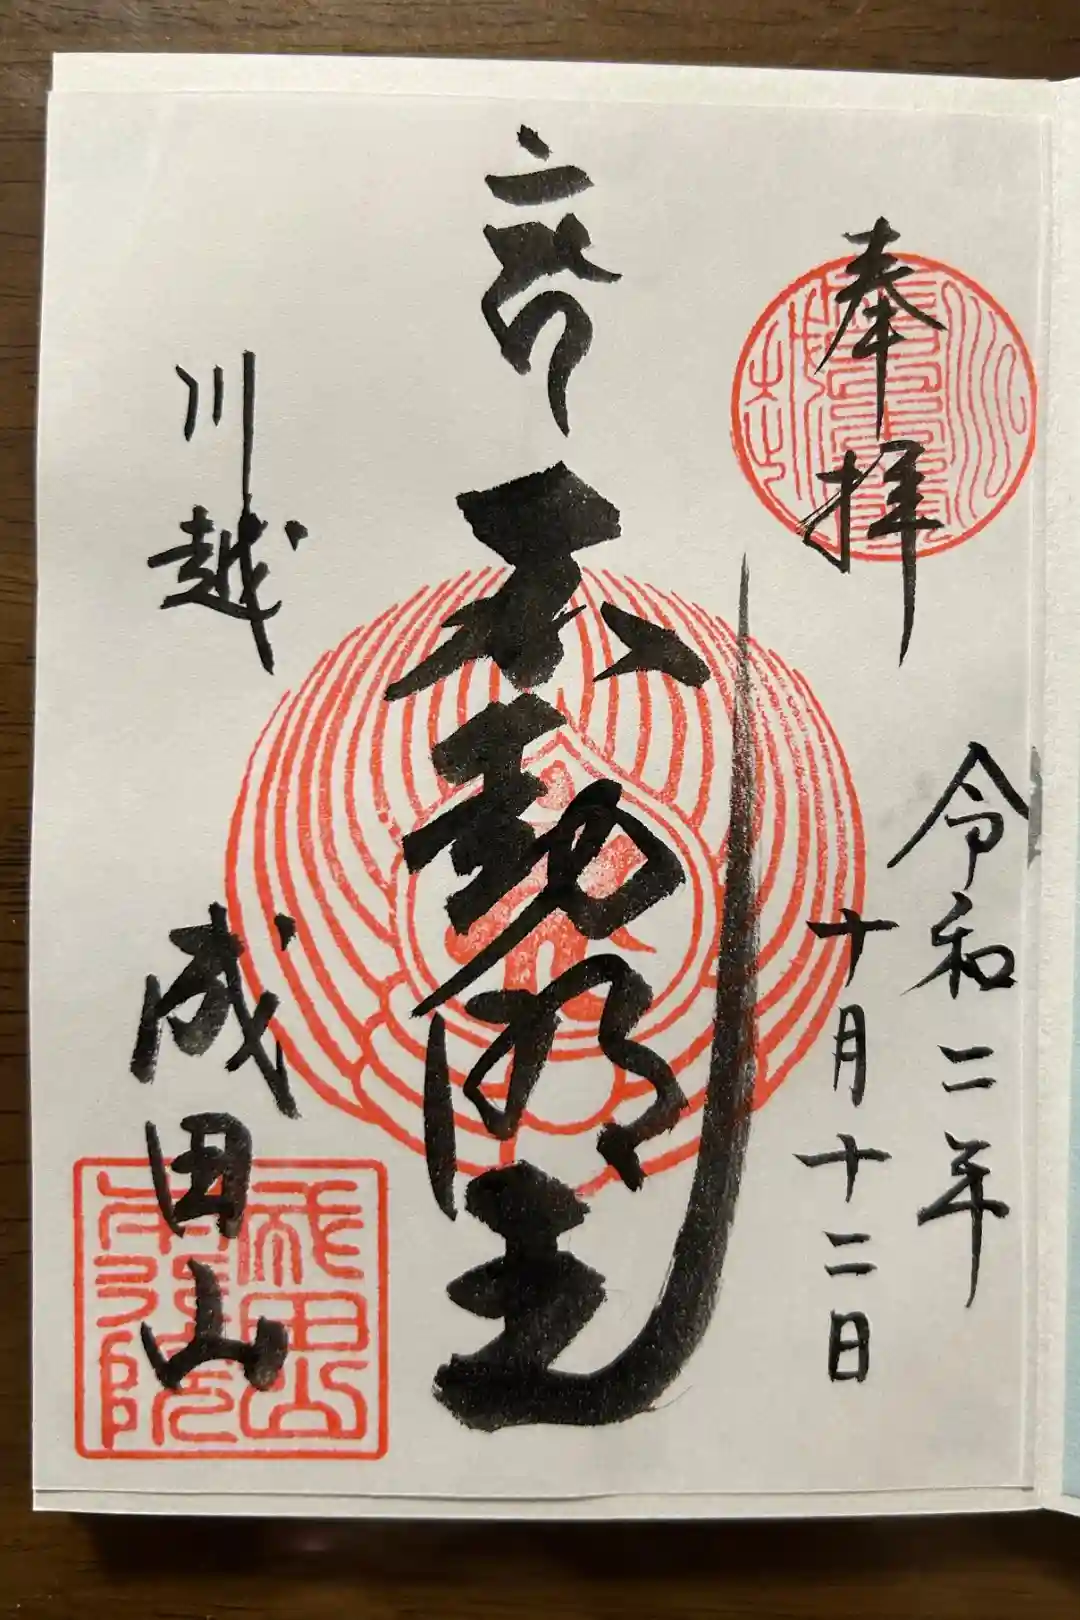 奉拝
令和二年
十月十二日
不動明王
川越
成田山
成田山
本行院